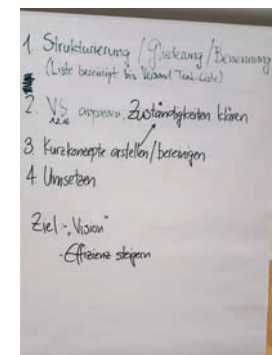 1. Strukturierung / Gliederung / Benennung
(Liste bereinigt bis Versand
2. VS anpassen, Zuständigkeiten klären
3. Kurzkonzepte erstellen/bereinigen
4. Umsetzen
Ziel: "Vision"
- Effizienz steigern